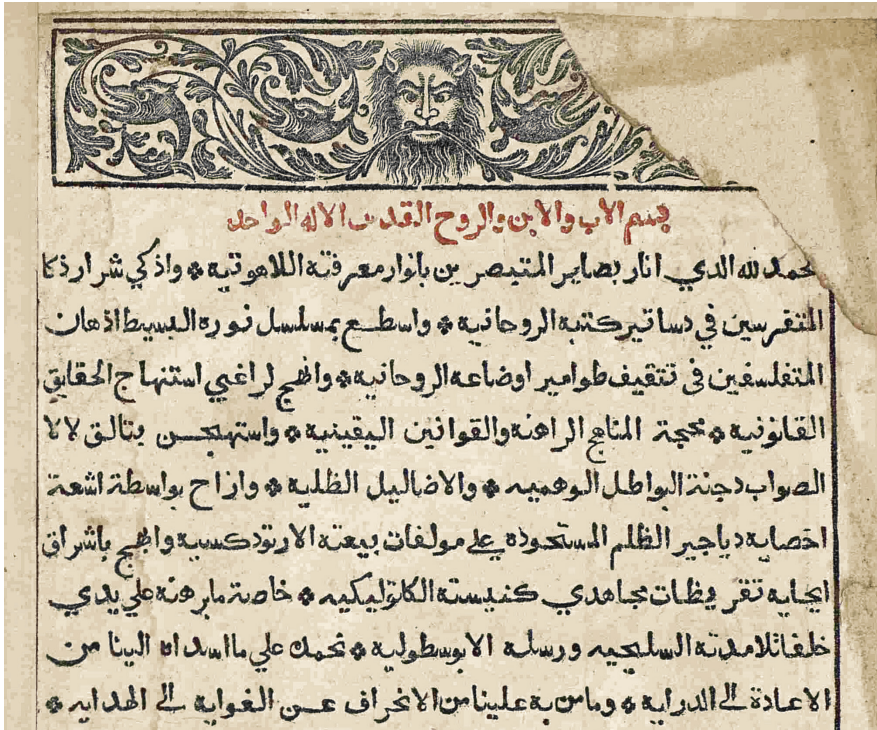 بسم الاب والابن والروح القدس الاله الواحد
لحمد لله الدي انار بصاير المتبصرين بانوار معرفته اللاهوتيه * واذكي شرار ذكا
المتفرسين في دساتير كتبه الروحانيه * واسطع بمسلسل نوره البسيط اذهان
المتفلسفين في تتقيف طوامير اوضاعه الروحانيه * وانهج لراغبي استنهاج الحقايق
القانونيه * محجة المناهج الراهنه والقوانين اليقينيه * واستهجن بتالق لالا
الصواب دجنة البواطل الوهميه * والاضاليل الظليه * وازاح بواسطة اشعة
اخصايه دياجير الظلم المستحوده علي مولفات بيعته الارتودكسيه وابهج باشراق
ايجايه تقريظات مجاهدي كنيسته الكاتوليكيه * خاصة مابرهنه علي يدي
خلفا تلامدته السليحيه ورسله الابوسطوليه * نحمدك علي ما اسداه الينا من
الاعادة الى الدرايه * وما من به علينا من الانحراف عن الغوايه الى الهدايه *